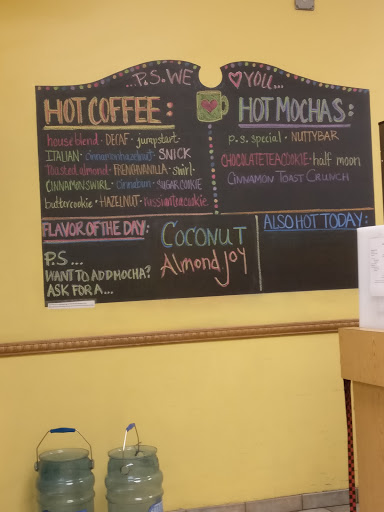 ...P.S. WE ♡ YOU...
HOT COFFEE:
house blend · DECAF · jumpstart ·
ITALIAN · cinnamon hazelnut · SNICK
Toasted almond · FRENCH VANILLA · swirl ·
CINNAMON SWIRL · Cinnabun · SUGAR COOKIE
buttercookie · HAZELNUT · russian tea cookie
HOT MOCHAS:
p.s. special · NUTTY BAR
CHOCOLATE TEA COOKIE · half moon
CINNAMON TOAST CRUNCH
FLAVOR OF THE DAY:
COCONUT
Almond joy
P.S...
WANT TO ADD MOCHA?
ASK FOR A...
ALSO HOT TODAY: